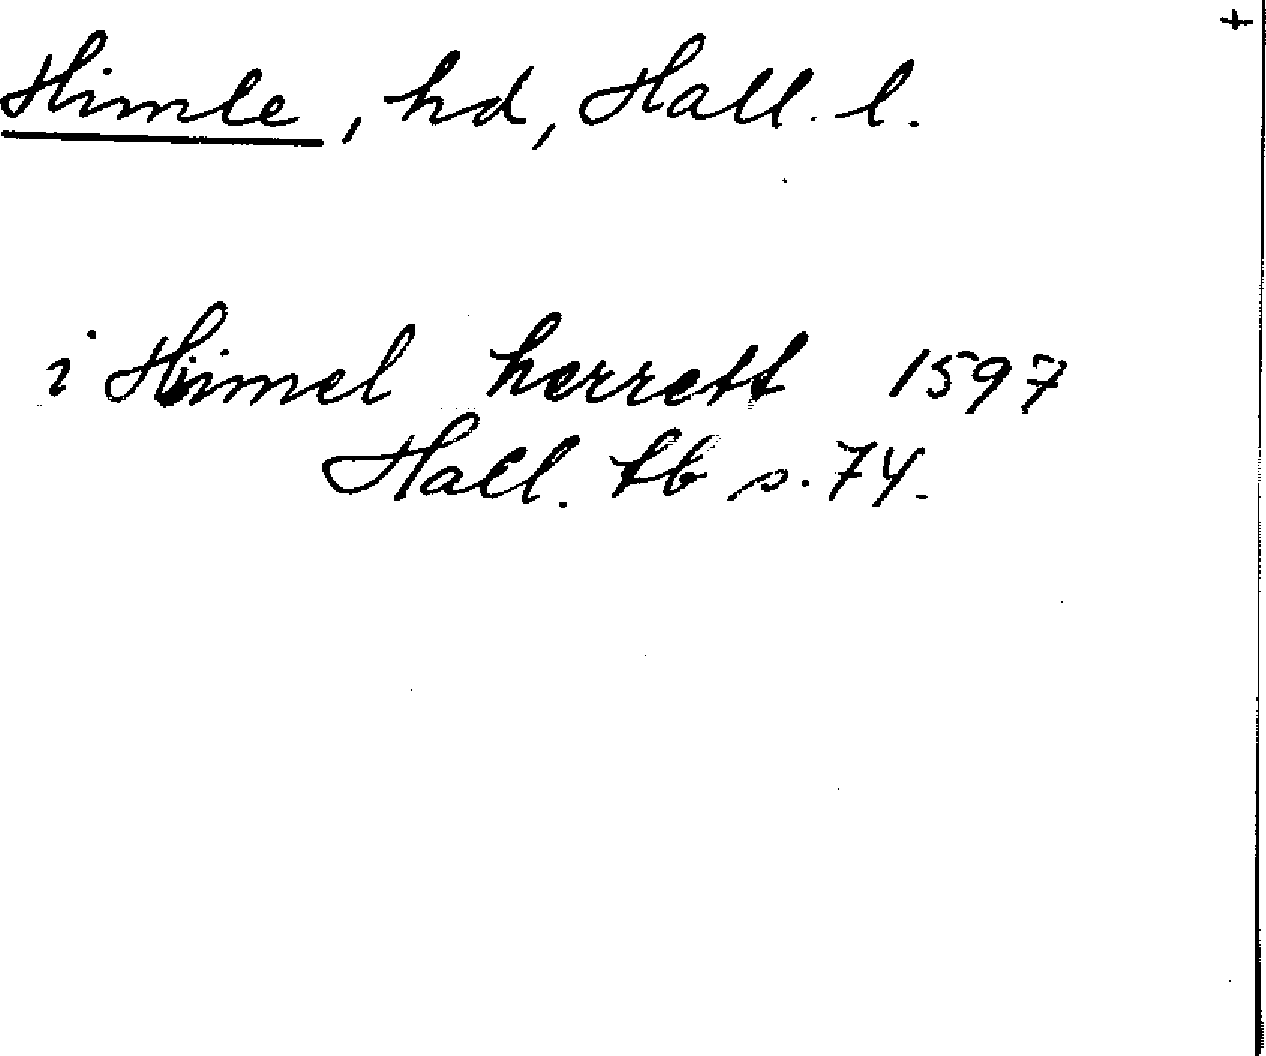 +
Himle, hd, Hall. l.
i Himel herrett 1597
Hall. tb s. 74.